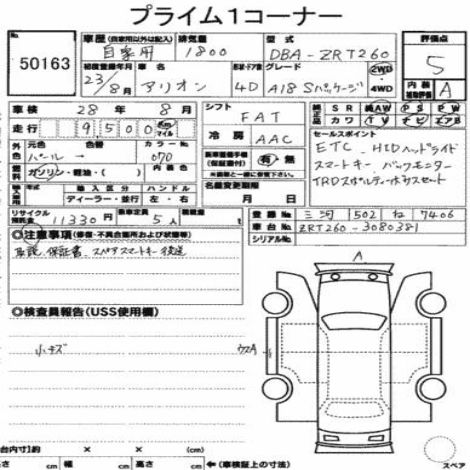 プライム1コーナー
No. 50163
車歴 (自家用以外は記入) 自家用
排気量 1800
型式 DBA-ZRT260
評価点 5
初度登録年月 23/8月
車名 アリオン
形状・ドア数 4D
グレード A18 Sパッケージ
2WD 4WD
内装 補助評価 A
車検 28年 8月
シフト FAT
純正品 SR 純AW PS PW
カワ TV ナビ エアB
走行 9500 Km マイル
冷房 AAC
セールスポイント
ETC、HIDヘッドライト
スマートキー バックモニター
外色 元色 パール
色替
カラーNo. 070
燃料 ガソリン・軽油・( )
新車整備手帳 (保証書付) 有・無
輸入車 年式
輸入区分 ディーラー・並行
ハンドル 左・右
名義変更期限 月 日
リサイクル預託金 11330円
乗車定員 5人
積載量
登録No. 三河 502 ね 7406
車台No. ZRT260-3080381
シリアルNo.
◎注意事項(修復・不具合箇所および状態等)
取説 保証書 スペアスマートキー後送
◎検査員報告(USS使用欄)
小キズ
A
スペア
台内寸法(約) × ×
長さ cm 幅 cm 高さ cm ←(車検証上の寸法)